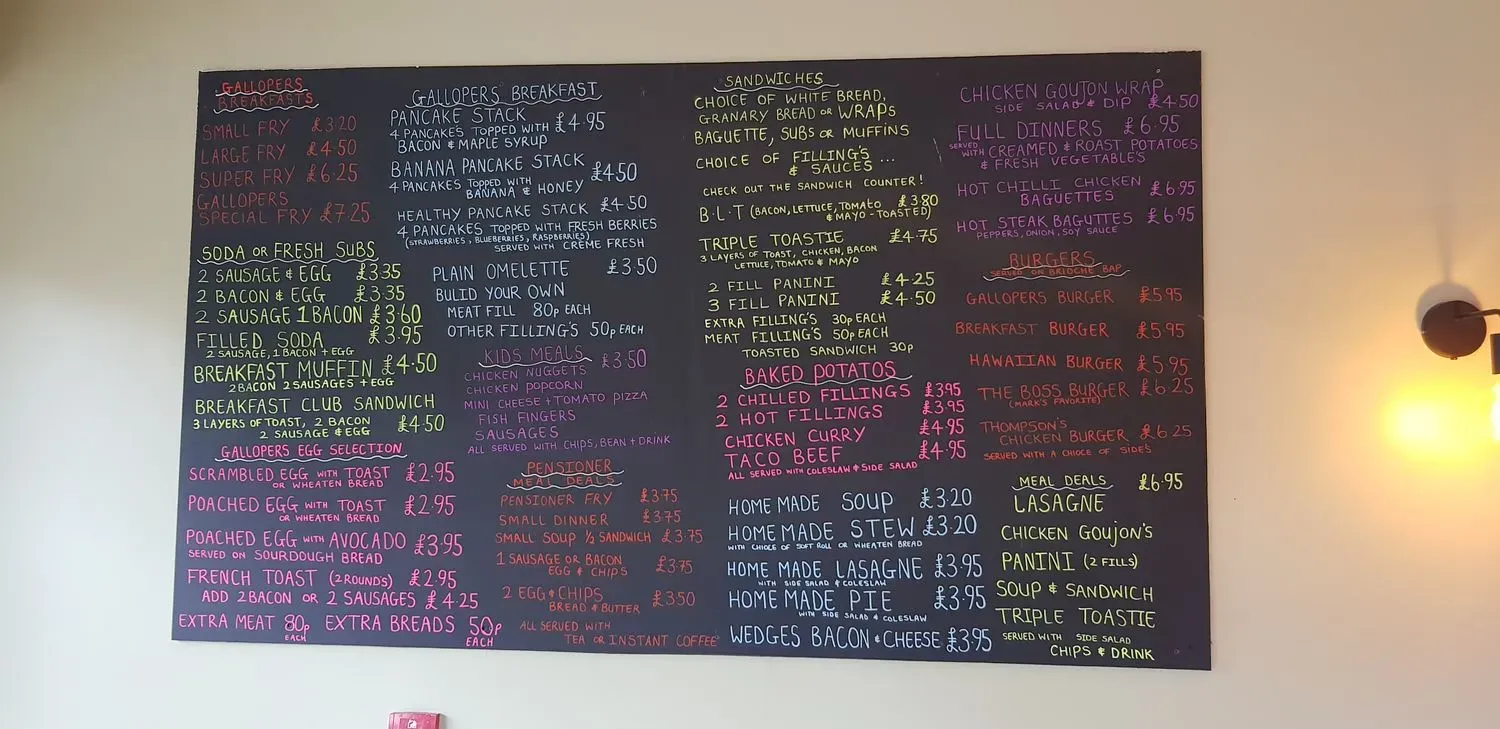 GALLOPERS
BREAKFASTS
SMALL FRY £3.20
LARGE FRY £4.50
SUPER FRY £6.25
GALLOPERS
SPECIAL FRY £7.25
SODA OR FRESH SUBS
2 SAUSAGE & EGG £3.35
2 BACON & EGG £3.35
2 SAUSAGE 1 BACON £3.60
FILLED SODA £3.95
2 SAUSAGE, 1 BACON + EGG
BREAKFAST MUFFIN £4.50
2 BACON 2 SAUSAGES + EGG
BREAKFAST CLUB SANDWICH
3 LAYERS OF TOAST, 2 BACON £4.50
2 SAUSAGE & EGG
GALLOPERS EGG SELECTION
SCRAMBLED EGG WITH TOAST £2.95
OR WHEATEN BREAD
POACHED EGG WITH TOAST £2.95
OR WHEATEN BREAD
POACHED EGG WITH AVOCADO £3.95
SERVED ON SOURDOUGH BREAD
FRENCH TOAST (2 ROUNDS) £2.95
ADD 2 BACON OR 2 SAUSAGES £4.25
EXTRA MEAT 80p EXTRA BREADS 50p
EACH EACH
GALLOPERS' BREAKFAST
PANCAKE STACK £4.95
4 PANCAKES TOPPED WITH
BACON & MAPLE SYRUP
BANANA PANCAKE STACK £4.50
4 PANCAKES TOPPED WITH
BANANA & HONEY
HEALTHY PANCAKE STACK £4.50
4 PANCAKES TOPPED WITH FRESH BERRIES
(STRAWBERRIES, BLUEBERRIES, RASPBERRIES)
SERVED WITH CREME FRESH
PLAIN OMELETTE £3.50
BULID YOUR OWN
MEAT FILL 80p EACH
OTHER FILLING'S 50p EACH
KIDS MEALS £3.50
CHICKEN NUGGETS
CHICKEN POPCORN
MINI CHEESE + TOMATO PIZZA
FISH FINGERS
SAUSAGES
ALL SERVED WITH CHIPS, BEAN + DRINK
PENSIONER
MEAL DEALS
PENSIONER FRY £3.75
SMALL DINNER £3.75
SMALL SOUP ½ SANDWICH £3.75
1 SAUSAGE OR BACON
EGG & CHIPS £3.75
2 EGG & CHIPS £3.50
BREAD & BUTTER
ALL SERVED WITH
TEA OR INSTANT COFFEE
SANDWICHES
CHOICE OF WHITE BREAD,
GRANARY BREAD OR WRAPS
BAGUETTE, SUBS OR MUFFINS
CHOICE OF FILLING'S ...
& SAUCES
CHECK OUT THE SANDWICH COUNTER!
B.L.T (BACON, LETTUCE, TOMATO £3.80
& MAYO - TOASTED)
TRIPLE TOASTIE £4.75
3 LAYERS OF TOAST, CHICKEN, BACON
LETTUCE, TOMATO & MAYO
2 FILL PANINI £4.25
3 FILL PANINI £4.50
EXTRA FILLING'S 30p EACH
MEAT FILLING'S 50p EACH
TOASTED SANDWICH 30p
BAKED POTATOS
2 CHILLED FILLINGS £3.95
2 HOT FILLINGS £3.95
CHICKEN CURRY £4.95
TACO BEEF £4.95
ALL SERVED WITH COLESLAW & SIDE SALAD
HOME MADE SOUP £3.20
HOME MADE STEW £3.20
WITH CHIOCE OF SOFT ROLL OR WHEATEN BREAD
HOME MADE LASAGNE £3.95
WITH SIDE SALAD & COLESLAW
HOME MADE PIE £3.95
WITH SIDE SALAD & COLESLAW
WEDGES BACON & CHEESE £3.95
CHICKEN GOUJON WRAP
SIDE SALAD & DIP £4.50
FULL DINNERS £6.95
SERVED WITH CREAMED & ROAST POTATOES
& FRESH VEGETABLE'S
HOT CHILLI CHICKEN £6.95
BAGUETTES
HOT STEAK BAGUTTES £6.95
PEPPERS, ONION, SOY SAUCE
BURGERS
SERVED ON BRIOCHE BAP
GALLOPERS BURGER £5.95
BREAKFAST BURGER £5.95
HAWAIIAN BURGER £5.95
THE BOSS BURGER £6.25
(MARK'S FAVORITE)
THOMPSON'S
CHICKEN BURGER £6.25
SERVED WITH A CHIOCE OF SIDES
MEAL DEALS £6.95
LASAGNE
CHICKEN GOUJON'S
PANINI (2 FILLS)
SOUP & SANDWICH
TRIPLE TOASTIE
SERVED WITH SIDE SALAD
CHIPS & DRINK